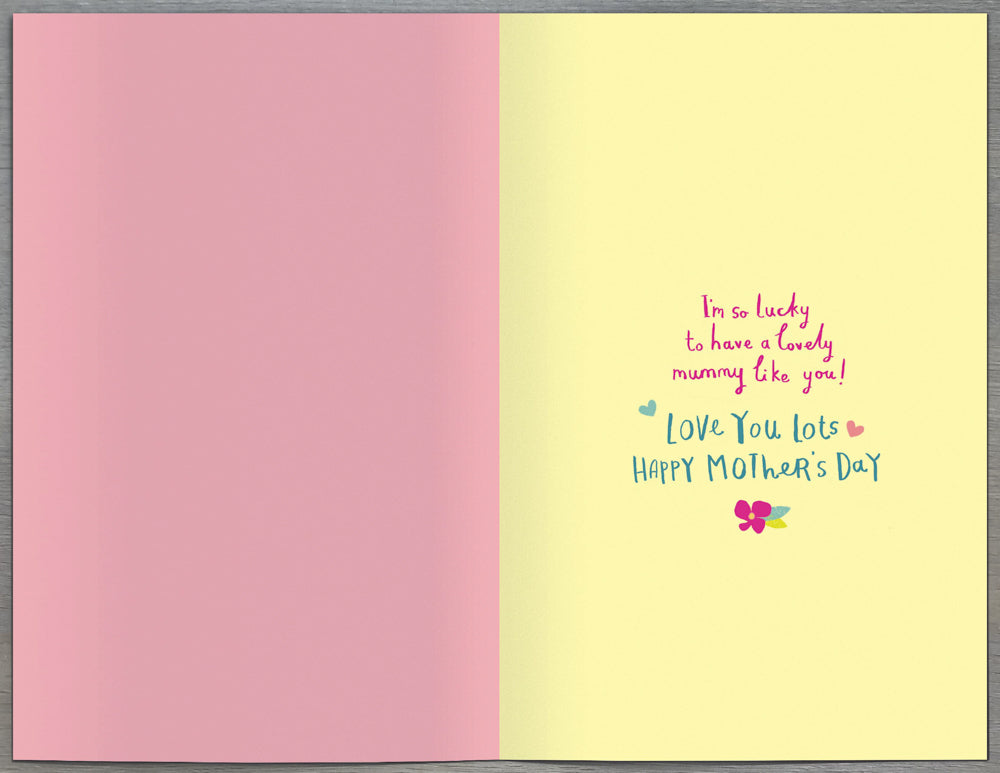 I'm so lucky
to have a lovely
mummy like you!
Love You Lots
Happy Mother's Day